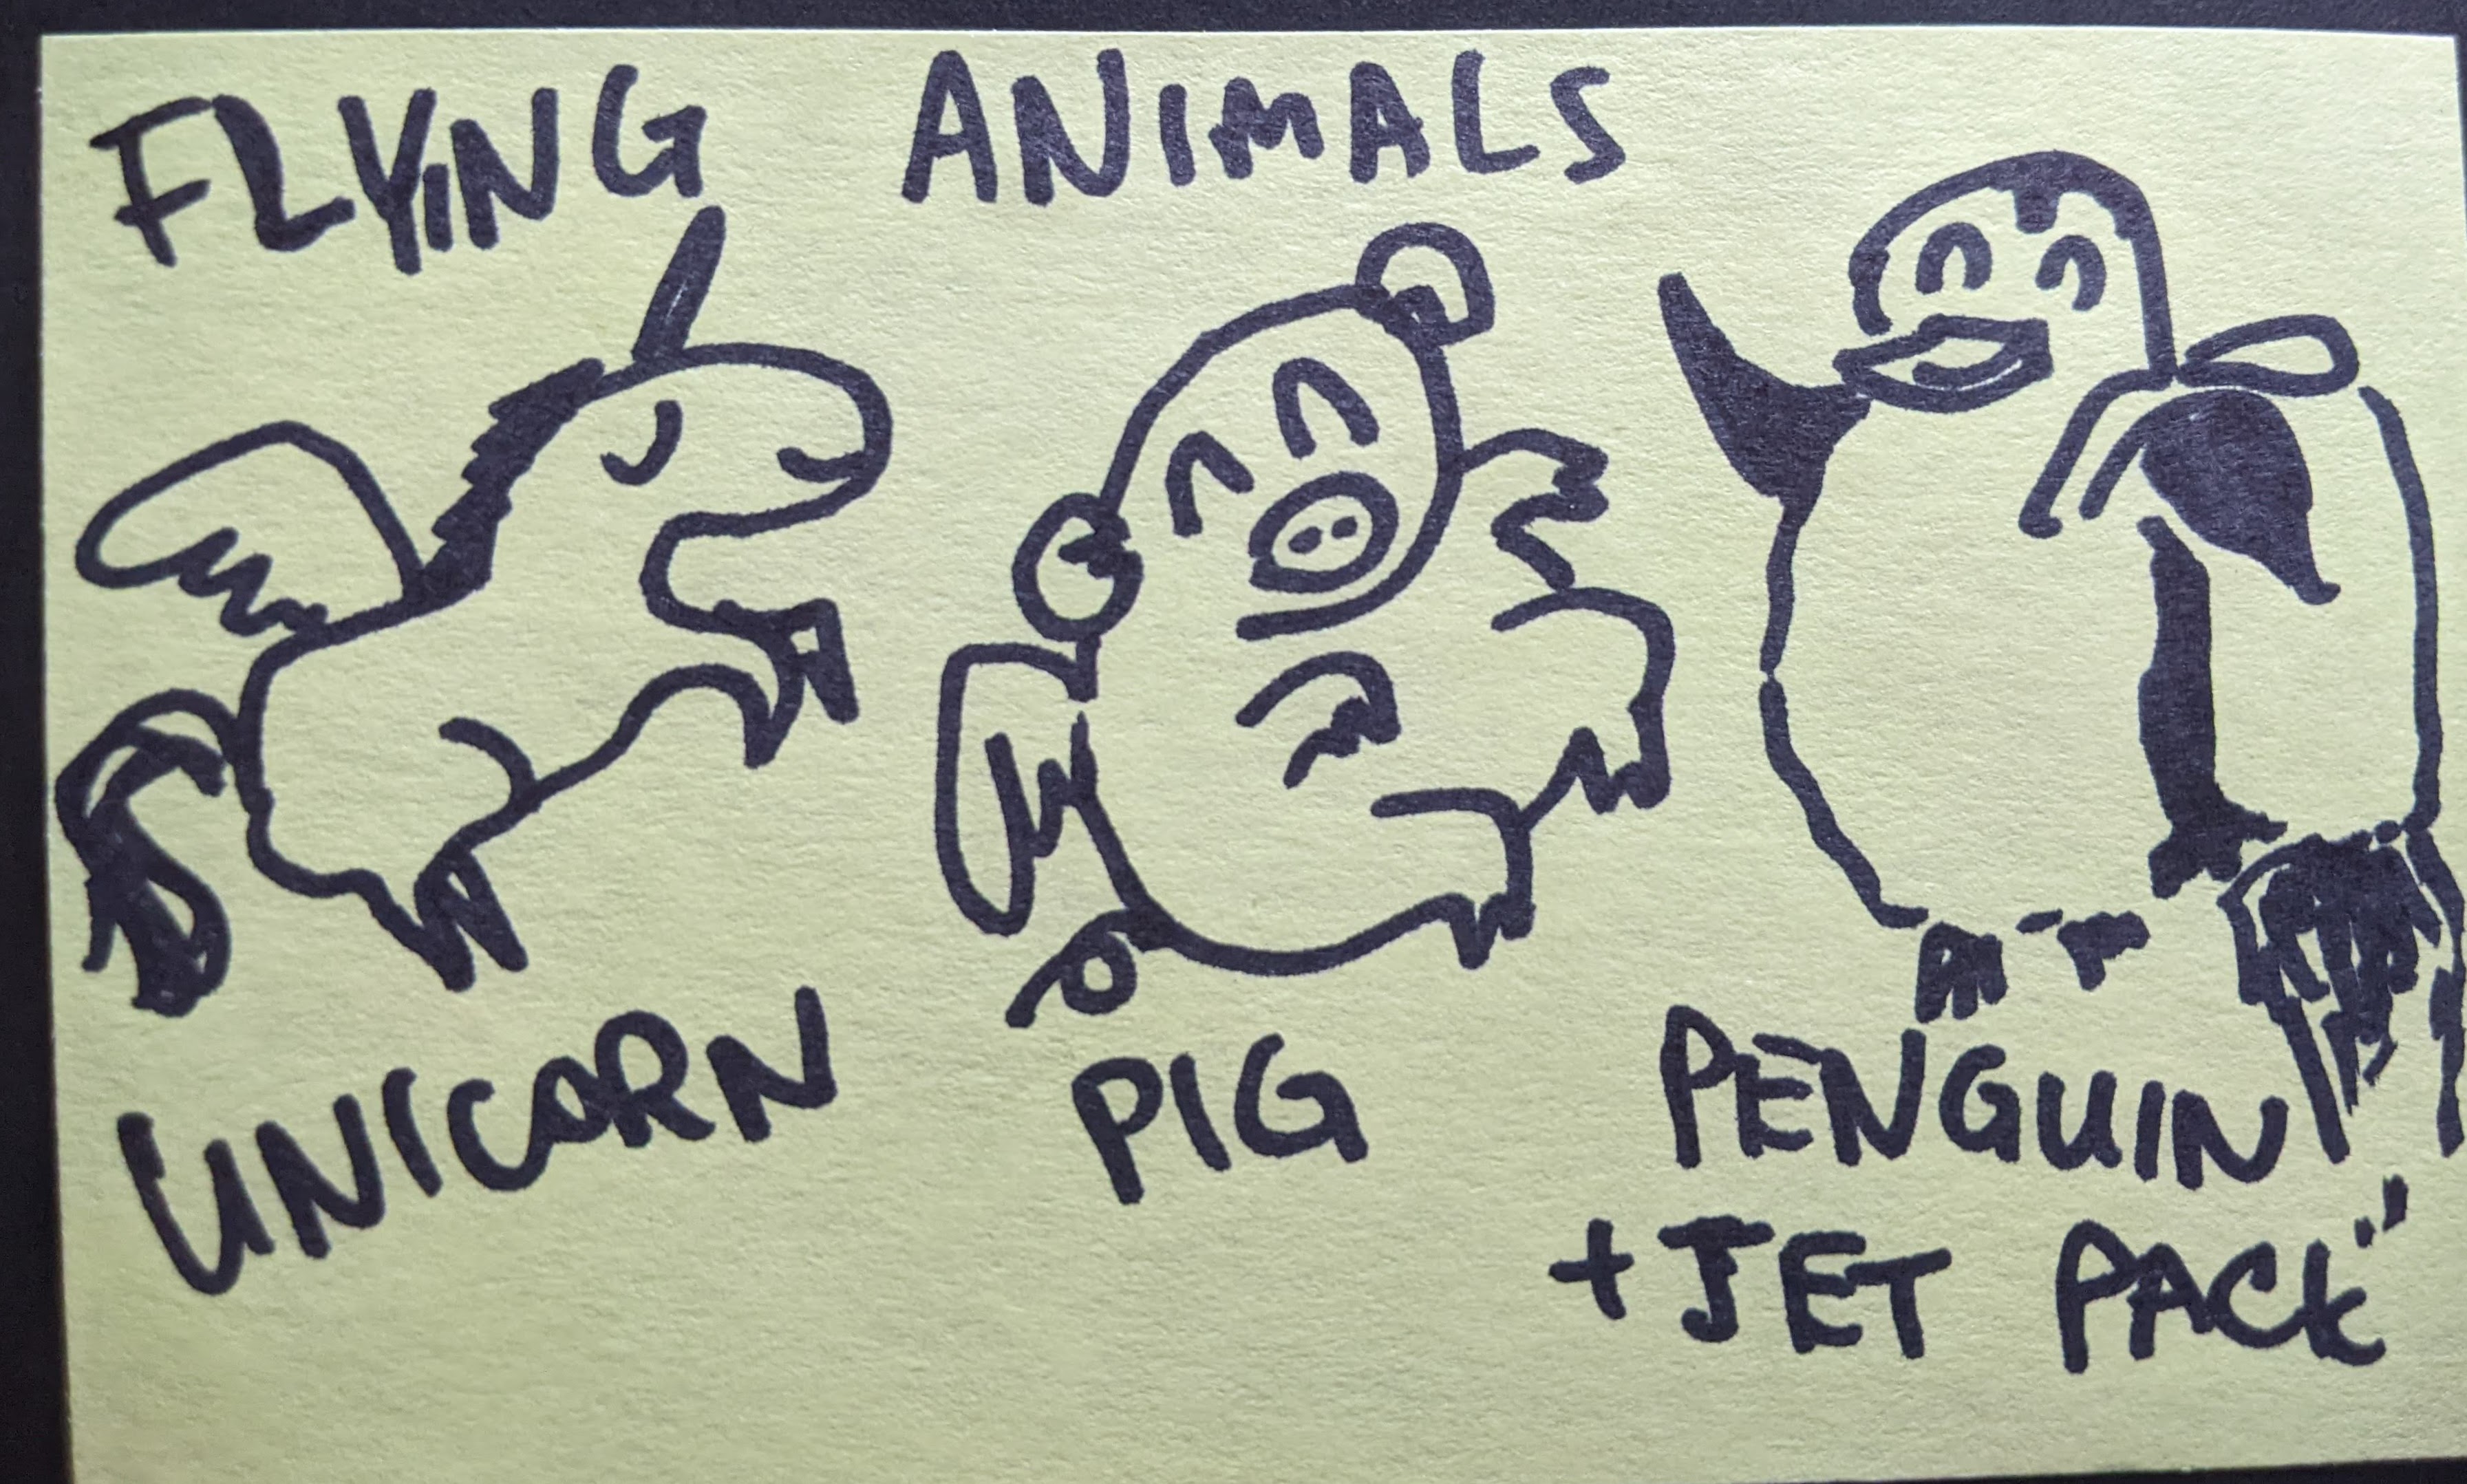 FLYING ANIMALS
UNICORN
PIG
PENGUIN
+ JET PACK